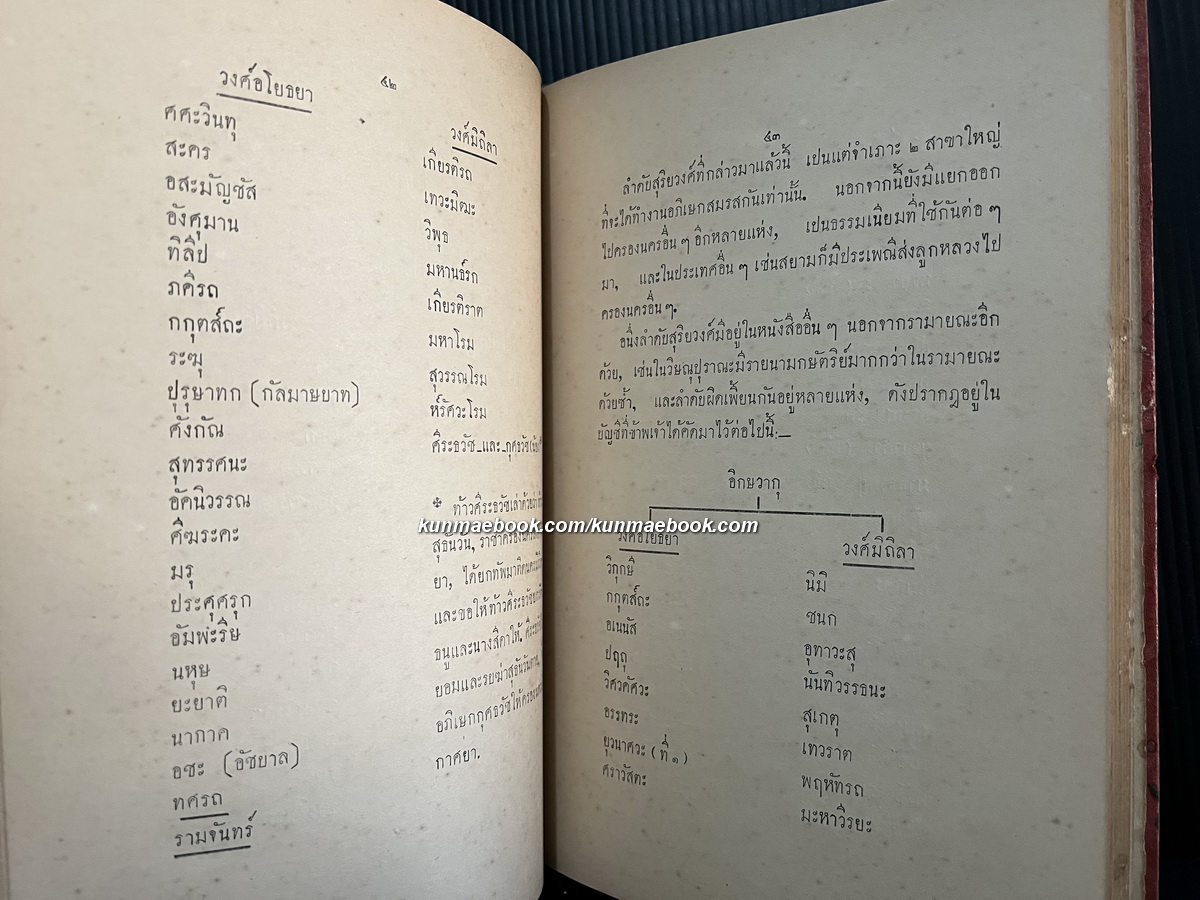 ๔๒
วงศ์อโยธยา
ศศะวินทุ
สะคร
อสะมัญชัส
อังศุมาน
ทิลีป
ภคีรถ
กกุตส์ถะ
ระฆุ
ปุรุษาทก (กัลมาษยาท)
ศังกัณ
สุทรรศนะ
อัคนิวรรณ
ศีฆระคะ
มรุ
ประศุศรุก
อัมพะรีษ
นหุษ
ยะยาติ
นาภาค
อชะ (อัชยาล)
ทศรถ
รามจันทร์
วงศ์มิถิลา
เกียรติรถ
เทวะมีฒะ
วิพุธ
มหานธ์รก
เกียรติราต
มหาโรม
สุวรรณโรม
ห์รัศวะโรม
ศีระธวัช_และ_กุศธวัช
ท้าวศีระธวัชเล่าด้วยว่า
สุธันวัน, ราชาครองนคร
ยา, ได้ยกทัพมาติด
และขอให้ท้าวศีระธวัช
ธนูและนางสีดาให้.
ยอมและรบฆ่าสุธันวันตาย,
อภิเษกกุศธวัชให้ครอง
กาศยา.
๔๓
ลำดับสุริยวงศ์ที่กล่าวมาแล้วนี้ เปนแต่จำเภาะ ๒ สาขาใหญ่
ที่จะได้ทำงานอภิเษกสมรสกันเท่านั้น. นอกจากนี้ยังมีแยกออก
ไปครองนครอื่น ๆ อีกหลายแห่ง, เปนธรรมเนียมที่ใช้กันต่อ ๆ
มา, และในประเทศอื่น ๆ เช่นสยามก็มีประเพณีส่งลูกหลวงไป
ครองนครอื่น ๆ.
อนึ่งลำดับสุริยวงศ์มีอยู่ในหนังสืออื่น ๆ นอกจากรามายณะอีก
ด้วย, เช่นในวิษณุปุราณะมีรายนามกษัตริย์มากกว่าในรามายณะ
ด้วยซ้ำ, และลำดับผิดเพี้ยนกันอยู่หลายแห่ง, ดังปรากฎอยู่ใน
บัญชีที่ข้าพเจ้าได้คัดมาไว้ต่อไปนี้:—
อิกษวากุ
วงศ์อโยธยา
วิกุกษิ
กกุตส์ถะ
อเนนัส
ปฤถุ
วิศวคัศวะ
อรรทระ
ยุวนาศวะ (ที่ ๑)
ศราวัสตะ
วงศ์มิถิลา
นิมิ
ชนก
อุทาวะสุ
นันทิวรรธนะ
สุเกตุ
เทวราต
พฤหัทรถ
มะหาวิรยะ
kunmaebook.com/kunmaebook.com